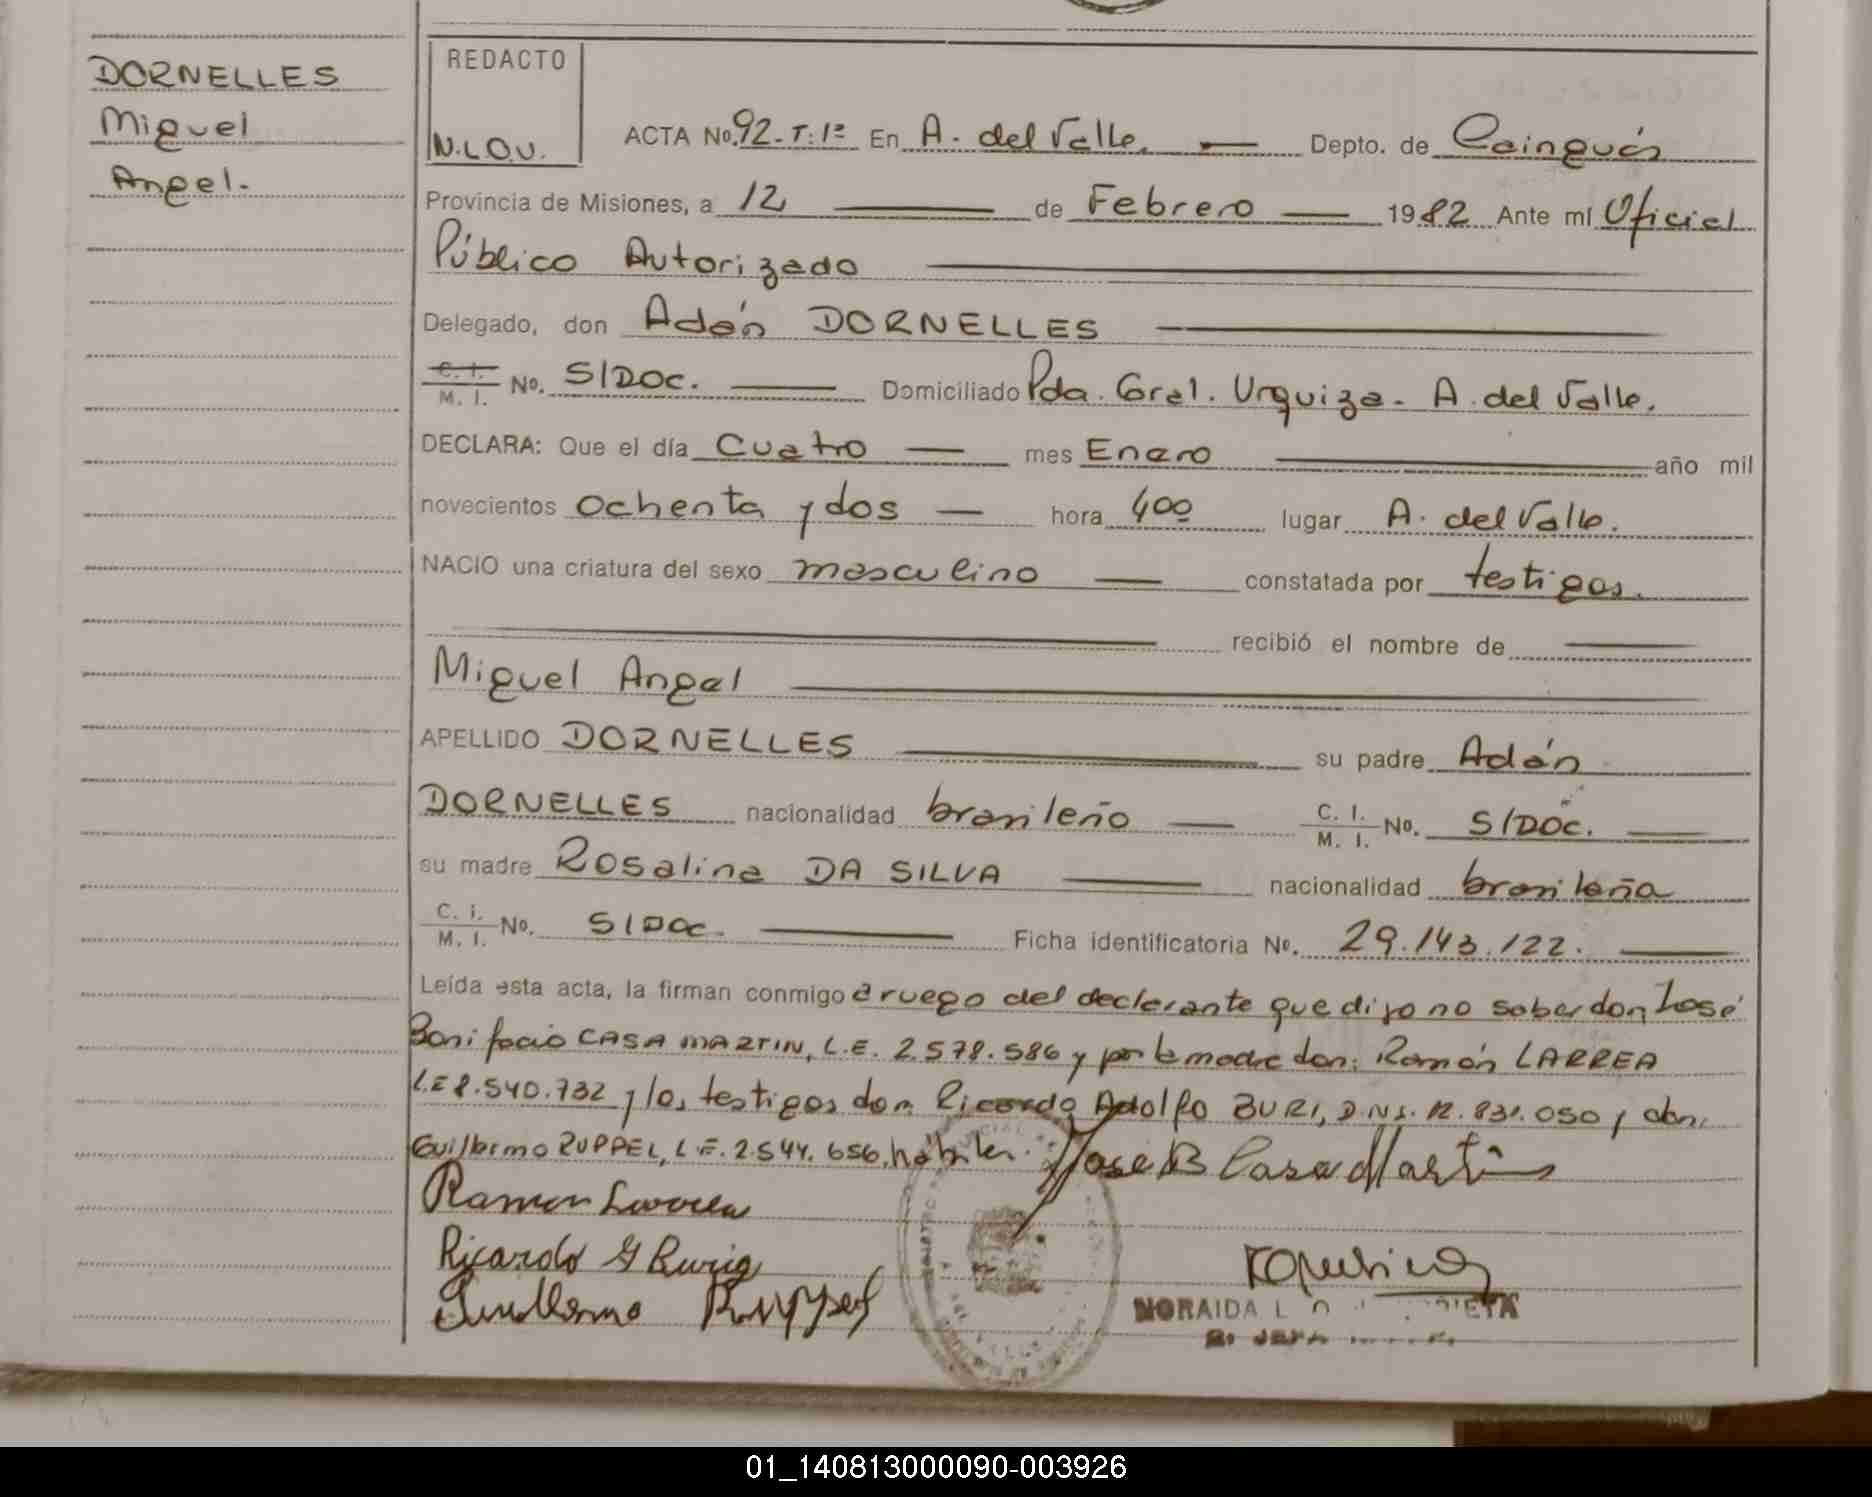 DORNELLES
Miguel
Angel.
REDACTO
N.L.O.V.
ACTA No. 92-T:1º En A. del Valle. Depto. de Cainguás
Provincia de Misiones, a 12 de Febrero 1982 Ante mí Oficial
Público Autorizado
Delegado, don Adán DORNELLES
C. I. M. I. No. S/DOC. Domiciliado Pda. Gral. Urquiza - A. del Valle.
DECLARA: Que el día Cuatro mes Enero año mil
novecientos ochenta y dos hora 400 lugar A. del Valle.
NACIO una criatura del sexo masculino constatada por testigos.
recibió el nombre de
Miguel Angel
APELLIDO DORNELLES su padre Adán
DORNELLES nacionalidad brasileño C. I. M. I. No. S/DOC.
su madre Rosalina DA SILVA nacionalidad brasileña
C. I. M. I. No. S/DOC. Ficha identificatoria No. 29.143.122.
Leída esta acta, la firman conmigo a ruego del declarante que dijo no saber don José
Bonifacio CASA MARTIN, L.E. 2.578.586 y por la madre don: Ramón LARREA
L.E 8.540.732 y los testigos don Ricardo Adolfo BURI, D.N.I. 12.831.050 y don:
Guillermo RUPPEL, L.E. 2.544.656, hábiles. José B Casa Martin
Ramon Larrea
Ricardo
Guillermo Ruppel
NORAIDA L.
01_140813000090-003926